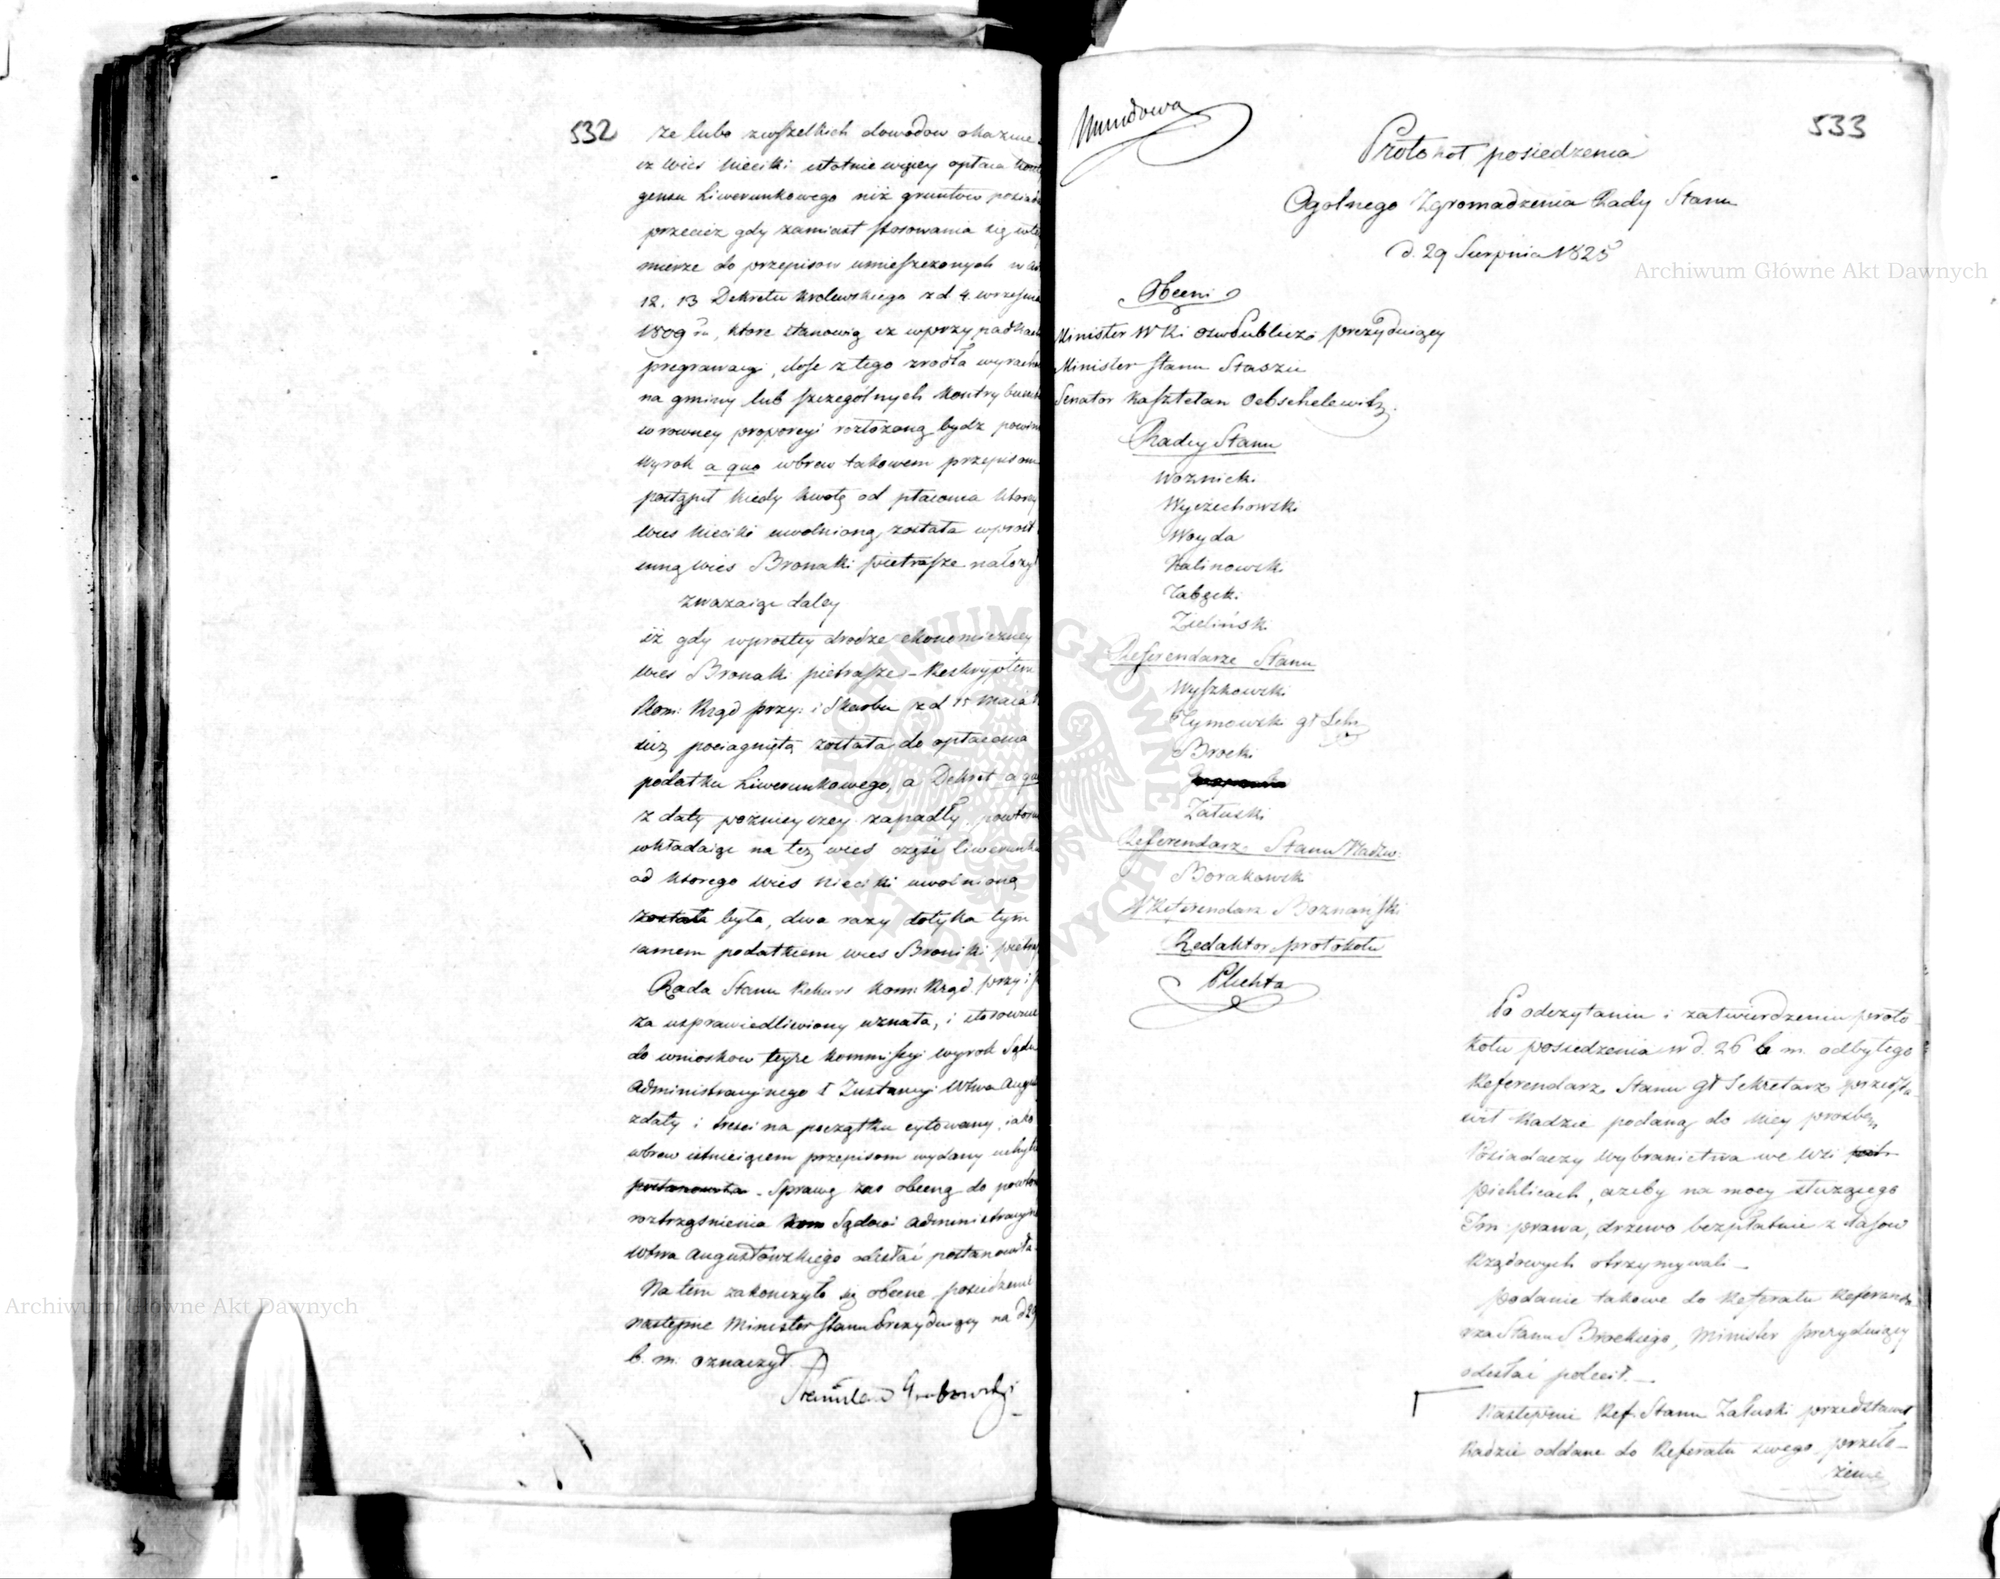 532
że lubo z wszelkich dowodow okazuie
iż wieś Nieciki istotnie więcey opłaca
gensu Liwerunkowego niż gruntow posiada
przecież gdy zamiast stosowania się w tey
mierze do przepisow umieszczonych w
12. 13 Dekretu Krolewskiego z d. 4. września
1809 r., ktore stanowią iż w przypadkach
pregrawacyi, dosc z tego zrodła
na gminy lub szczególnych
w rowney proporcyi rozłożoną bydz
Wyrok a quo wbrew takowem przepisom
postąpił kiedy kwotę od płacenia ktorey
wieś Nieciki uwolnioną została wprost
inną wieś Bronaki pietrasze nałożył
zważaiąc daley
iż gdy w prostey drodze ekonomiczney
wieś Bronaki pietrasze Reskryptem
Kom: Rząd przy: i Skarbu z d 15 Maia
iuż pociągniętą została do opłacenia
podatku Liwerunkowego, a Dekret a quo
z daty poznieyszey zapadły
wkładaiąc na tęż wieś część
od ktorego wieś Nieciki uwolnioną
została była, dwa razy dotyka tym
samem podatkiem wieś Broniki
Rada Stanu Rekurs Kom: Rząd. przy: i
za usprawiedliwiony uznała, i stosownie
do wnioskow teyże Kommissyi wyrok Sądu
Administracyinego I Instancyi Wtwa
z daty i treści na początku cytowany, iako
wbrew istnieiącem przepisom wydany
postanowiła. Sprawę zas obecną do
roztrząśnienia Sądowi Administracyin
Wtwa Augustowskiego odesłać postanowiła.
Na tem zakonczyło się obecne posiedzenie
następne Minister Stanu Prezyduiący na d 29
b. m. oznaczył.
Stanisław Grabowski
533
Mundowa
Protokoł posiedzenia
Ogolnego Zgromadzenia Rady Stanu
d. 29 Sierpnia 1825
Obecni
Minister W Ri Oświe Publicz: prezyduiący
Minister Stanu Staszic
Senator Kasztelan Oebschelewitz.
Radcy Stanu
Woznicki
Wyczechowski
Woyda
Kalinowski
Zabęcki
Zieliński
Referendarze Stanu
Wyszkowski
Tymowski gł Sekr
Brocki
Załuski
Referendarz Stanu Nadzw:
Borakowski
W Referendarz Boznański
Redaktor protokołu
Pluchta
Po odczytaniu i zatwierdzeniu proto-
kołu posiedzenia w d. 26 b. m. odbytego
Referendarz Stanu gł Sekretarz przedsta-
wił Radzie podaną do Niey prosbę
Posiadaczy Wybranictwa we Wsi
Pichlicach, ażeby na mocy służącego
Im prawa, drzewo bezpłatnie z lasow
Rządowych otrzymywali —
Podanie takowe do Referatu Referenda-
rza Stanu Brockiego, Minister prezyduiący
odesłać polecił. —
Następnie Ref. Stanu Załuski przedstawił
Radzie oddane do Referatu swego przeło-
żenie
Archiwum Główne Akt Dawnych
Archiwum Główne Akt Dawnych
ARCHIWUM GŁÓWNE AKT DAWNYCH